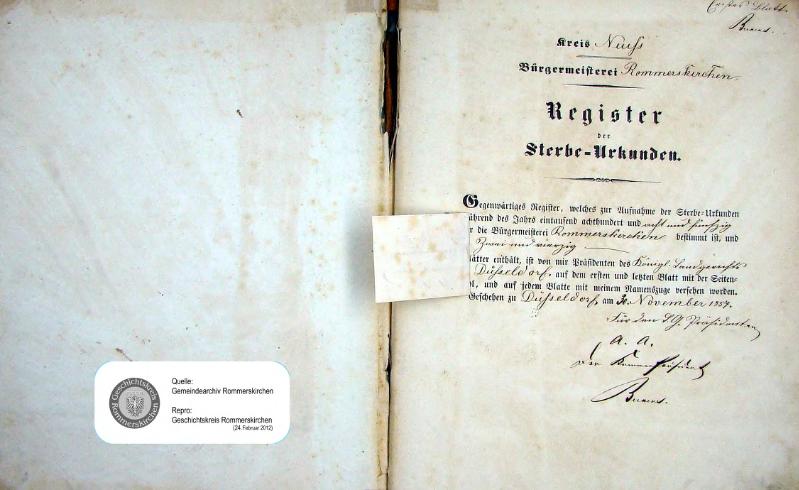 Erstes Blatt.
Kreis Neuß
Bürgermeisterei Rommerskirchen.
Register
der
Sterbe-Urkunden.
Gegenwärtiges Register, welches zur Aufnahme der Sterbe-Urkunden
ährend des Jahrs eintausend achthundert und acht und fünfzig
r die Bürgermeisterei Rommerskirchen bestimmt ist, und
Zwei und vierzig
lätter enthält, ist von mir Präsidenten des Königl. Landgerichts
Düsseldorf, auf dem ersten und letzten Blatt mit der Seiten-
l, und auf jedem Blatte mit meinem Namenszuge versehen worden.
Geschehen zu Düsseldorf, am 30. November 1857.
Für den L.G. Präsidenten
a. a.
Der Kammerpräsident
Geschichtskreis
Rommerskirchen
Quelle:
Gemeindearchiv Rommerskirchen
Repro:
Geschichtskreis Rommerskirchen
(24. Februar 2012)